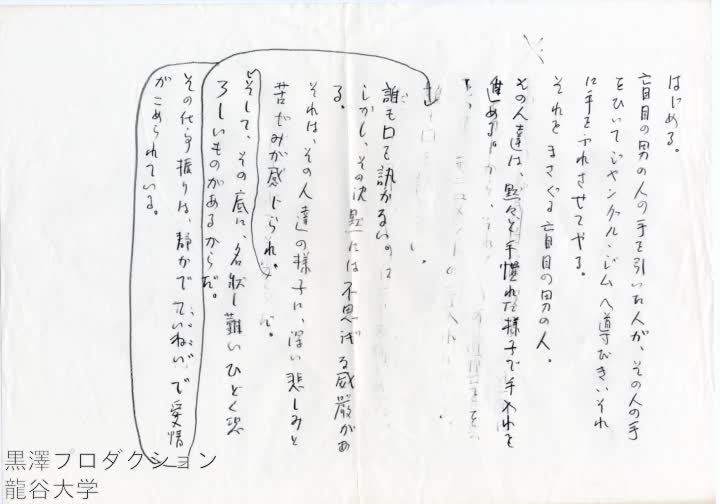 はじめる。
盲目の男の人の手を引いた人が、その人の手
をひいてジャングル・ジムへ導びき、それ
に手をふれさせてやる。
それをまさぐる盲目の男の人。
その人達は、黙々と手慣れた様子で手入れを
進める。
誰も口を訊かない。
しかし、その沈黙には不思議な威厳があ
る。
それは、その人達の様子に、深い悲しみと
苦しみが感じられ、
そして、その底に、名状し難いひどく恐
ろしいものがあるからだ。
その仕事振りは、静かでていねいで愛情
がこめられている。
黒澤プロダクション
龍谷大学